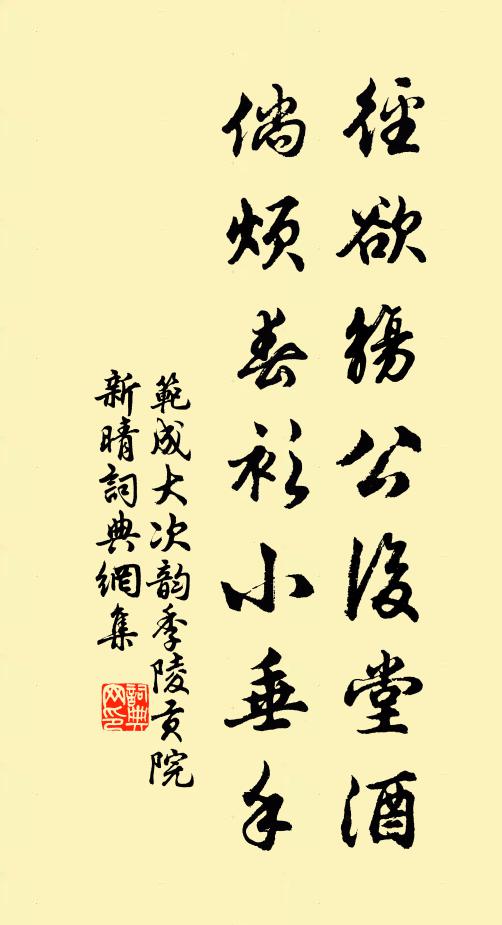 徑欲觴公後堂酒
倘煩春衫小垂手
範成大次韵季陵貢院
新晴詞典網集
詞典
网印